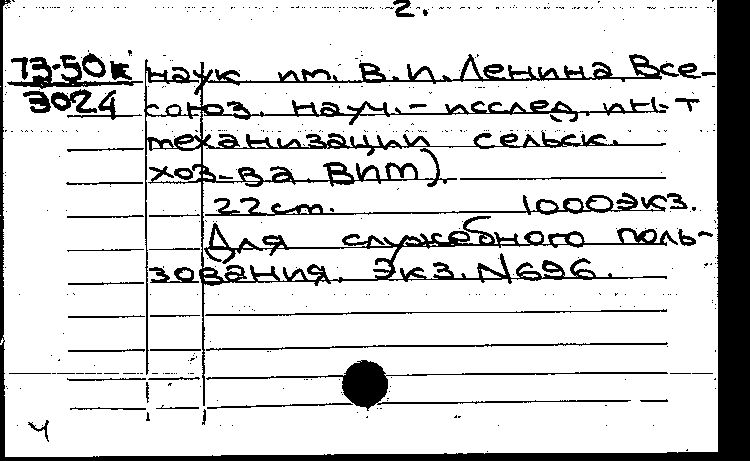 2.
73-50к наук им. В.И. Ленина. Все-
3024 союз. науч.-исслед. ин-т
механизации сельск.
хоз-ва. ВИМ).
22 ст. 1000 экз.
Для служебного поль-
зования. Экз. N 696.
ч